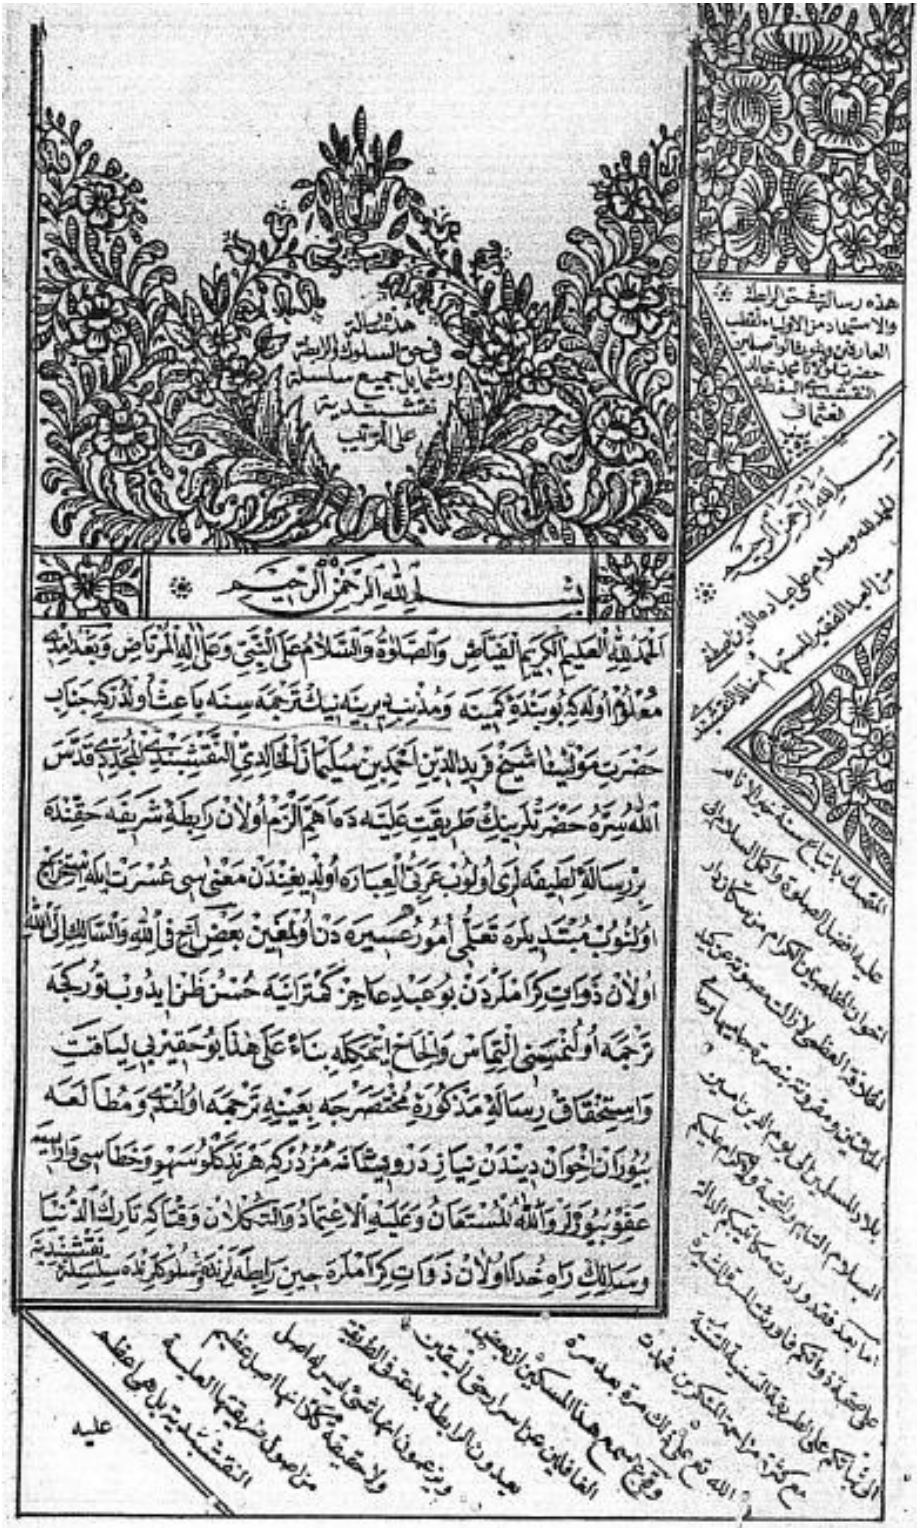 هذه رسالة
في حق السلوك والرابطة
وشمايل جميع سلسلة
نقشبندية
على الترتيب
بسم الله الرحمن الرحيم
الحمد لله العليم الكريم الفياض والصلوة والسلام على النبي وعلى اله المرتاض وبعد امدى
معلوم اوله كه بو بنده كمينه ومذنب پرينه نيك ترجمه سنه باعث اولدركه جناب
حضرت مولينا شيخ فريد الدين احمد بن سليمان الخالدى النقشبندى المجددى قدس
الله سره حضرتلرينك طريقت عليه ده اهم الزم اولان رابطة شريفه حقنده
بر رسالة لطيفه لرى اولوب عربى العباره اولديغندن معنى سى عسرت ايله استخراج
اولنوب مبتديلره تعلمى امور عسيره دن اولمغين بعض اخ فى الله والسالك الى الله
اولان ذوات كراملردن بو عبد عاجز كمترانيه حسن ظن ايدوب تورکجه
ترجمه اولنمسنى التماس والحاح ايتمكله بناء على هذا بو حقير بى لياقت
واستحقاق رسالة مذكورة مختصرجه بعينه ترجمه اولندى ومطالعه
بيوران اخوان ديندن نياز درويشانه مزدركه هر نه كلو سهو وخطاسى وارايسه
عفو بيوره لر والله المستعان وعليه الاعتماد والتكلان وقتاكه تارك الدنيا
وسالك راه خدا اولان ذوات كراملره حين رابطه لرنده وسلوكلرنده سلسلة نقشبندية
هذه رسالة في حق الرابطة
والاستمداد من الاولياء لقطب
العارفين وغوث الواصلين
حضرت مولانا محمد خالد
النقشبندى
العثمانى
بسم الله الرحمن الرحيم
الحمد لله وسلام على عباده الذين اصطفى
من العبد الفقير المستهام خالد النقشبندى
المتمسك باتباع سنة سيد الانام
عليه افضل الصلوة واكمل السلام الى
اخوان المخلصين الكرام من سكان دار
الخلافة العظمى لا زالت مصونة عن كيد
الخائنين ومقرونة بنصرة حاميها وسائر
بلاد المسلمين الى يوم الدين امين
السلام التام والتحية والاكرام عليكم
اما بعد فقد وردت مكاتيبكم الدالة
على صحبة ذواتكم فاورثت المسرة الشهيرة
الى ثباتكم على الطريقة السنية السنية
مع كثرة مزاحمة المنكرين فحمدت
الله تعالى على ذلك مرة بعد مرة
وقرع سمع هذا المسكين ان بعض
الغافلين عن اسرار حق اليقين
يعدون الرابطة بدعة فى الطريقة
ويزعمون انها شئ ليس له اصل
ولا حقيقة كلا انها اصل عظيم
من اصول طريقتنا العلية
النقشبندية بل هى اعظم
عليه